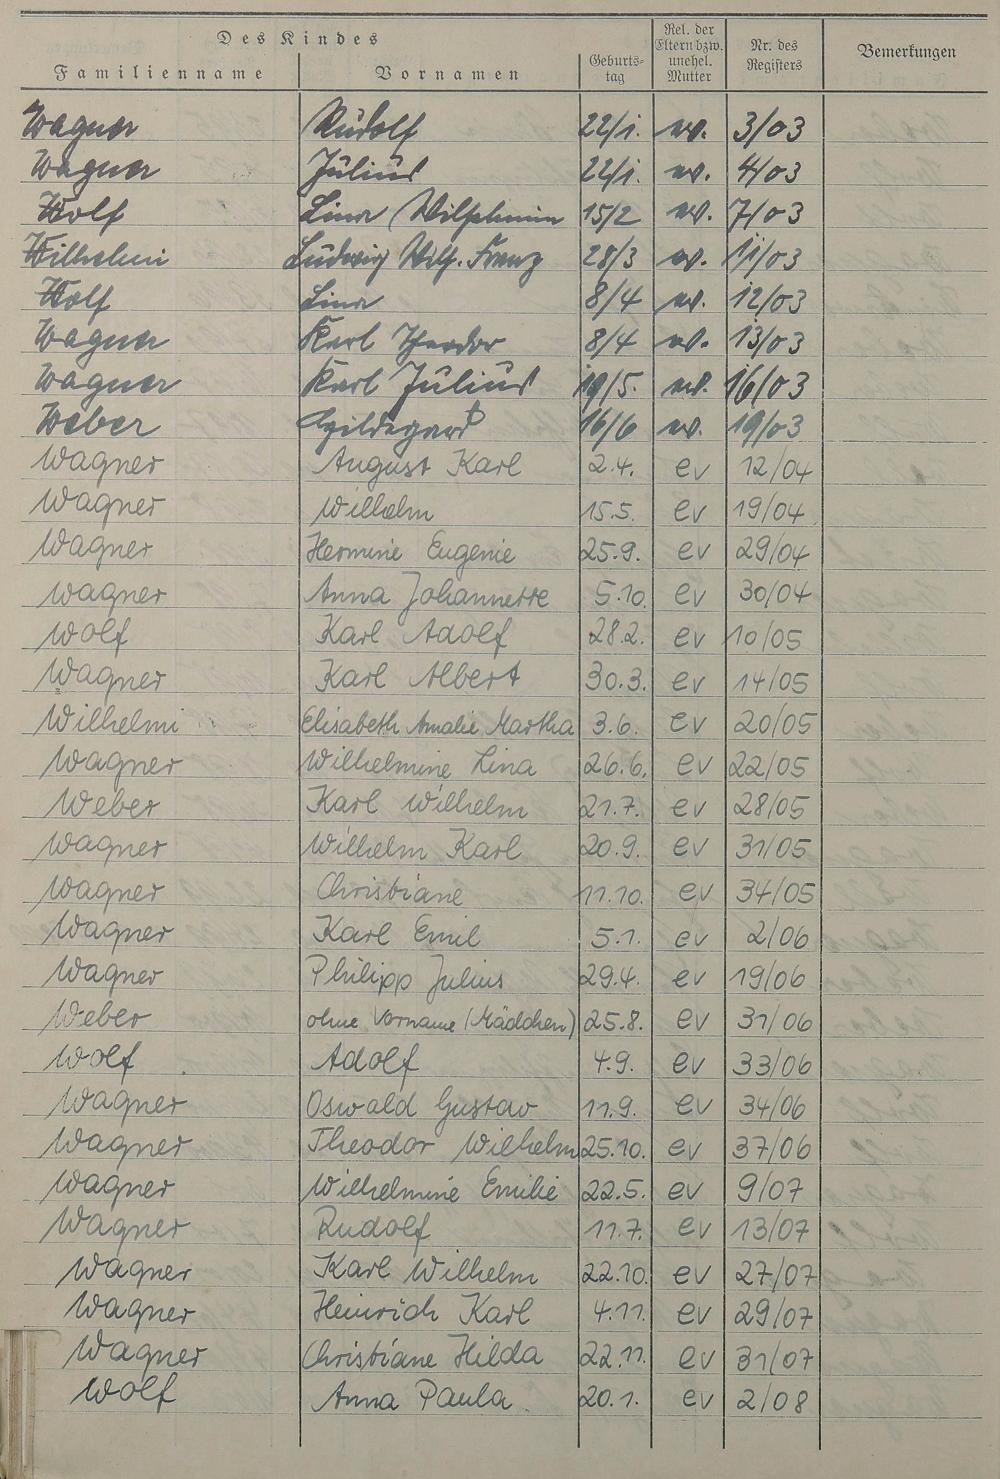 Des Kindes
Familienname Vornamen Geburts-tag Rel. der Eltern bzw. unehel. Mutter Nr. des Registers Bemerkungen
Wagner Rudolf 22/1. ev. 3/03
Wagner Julius 22/1. ev. 4/03
Wolf Lina (Wilhelmin 15/2 ev. 7/03
Wilhelmi Ludwig Wilh. Franz 28/3 ev. 11/03
Wolf Lina 8/4 ev. 12/03
Wagner Karl Theodor 8/4 ev. 13/03
Wagner Karl Julius 19/5. ev. 16/03
Weber Hildegard 16/6 ev. 19/03
Wagner August Karl 2.4. ev 12/04
Wagner Wilhelm 15.5. ev 19/04
Wagner Hermine Eugenie 25.9. ev 29/04
Wagner Anna Johannette 5.10. ev 30/04
Wolf Karl Adolf 28.2. ev 10/05
Wagner Karl Albert 30.3. ev 14/05
Wilhelmi Elisabeth Amalie Martha 3.6. ev 20/05
Wagner Wilhelmine Lina 26.6. ev 22/05
Weber Karl Wilhelm 21.7. ev 28/05
Wagner Wilhelm Karl 20.9. ev 31/05
Wagner Christiane 11.10. ev 34/05
Wagner Karl Emil 5.1. ev 2/06
Wagner Philipp Julius 29.4. ev 19/06
Weber ohne Vorname (Mädchen) 25.8. ev 31/06
Wolf Adolf 4.9. ev 33/06
Wagner Oswald Gustav 11.9. ev 34/06
Wagner Theodor Wilhelm 25.10. ev 37/06
Wagner Wilhelmine Emilie 22.5. ev 9/07
Wagner Rudolf 11.7. ev 13/07
Wagner Karl Wilhelm 22.10. ev 27/07
Wagner Heinrich Karl 4.11. ev 29/07
Wagner Christiane Hilda 22.11. ev 31/07
Wolf Anna Paula 20.1. ev 2/08